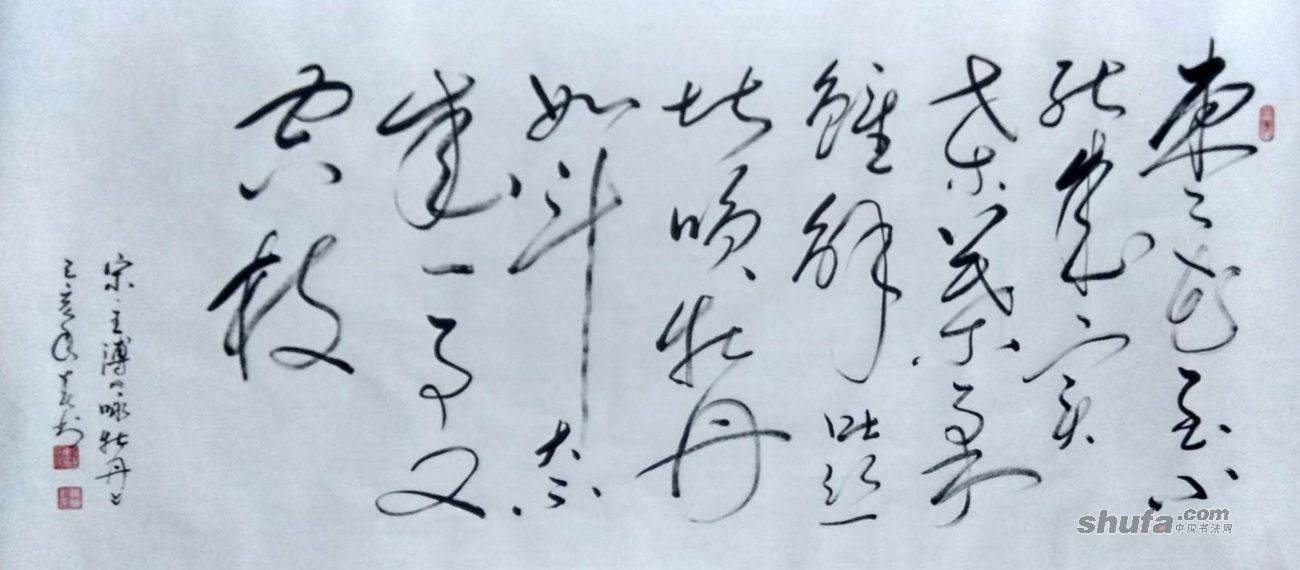 枣花至小
能成实
桑葉柔
雖解吐丝
堪咲牡丹
如斗大不
成一事又
空枝
宋·王溥《咏牡丹》
己亥年
shufa.com
中国书法网